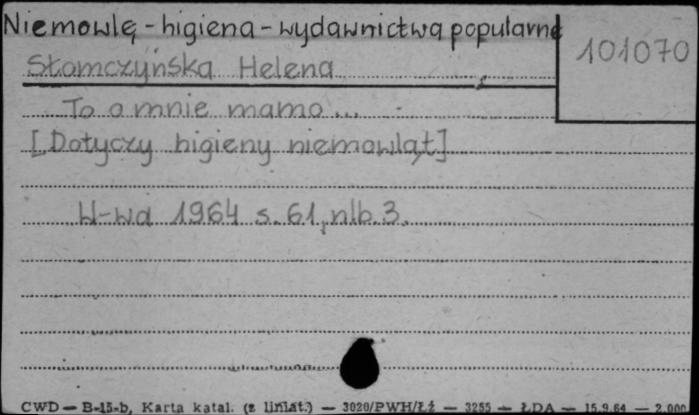 Niemowlę - higiena - wydawnictwa popularne
101070
Słomczyńska Helena
To o mnie mamo...
[Dotyczy higieny niemowląt]
W-wa 1964 s. 61, nlb. 3.
CWD — B-15-b, Karta katal. (z liniat.) — 3020/PWH/Łź — 3255 — ŁDA — 15.9.64 — 2.000